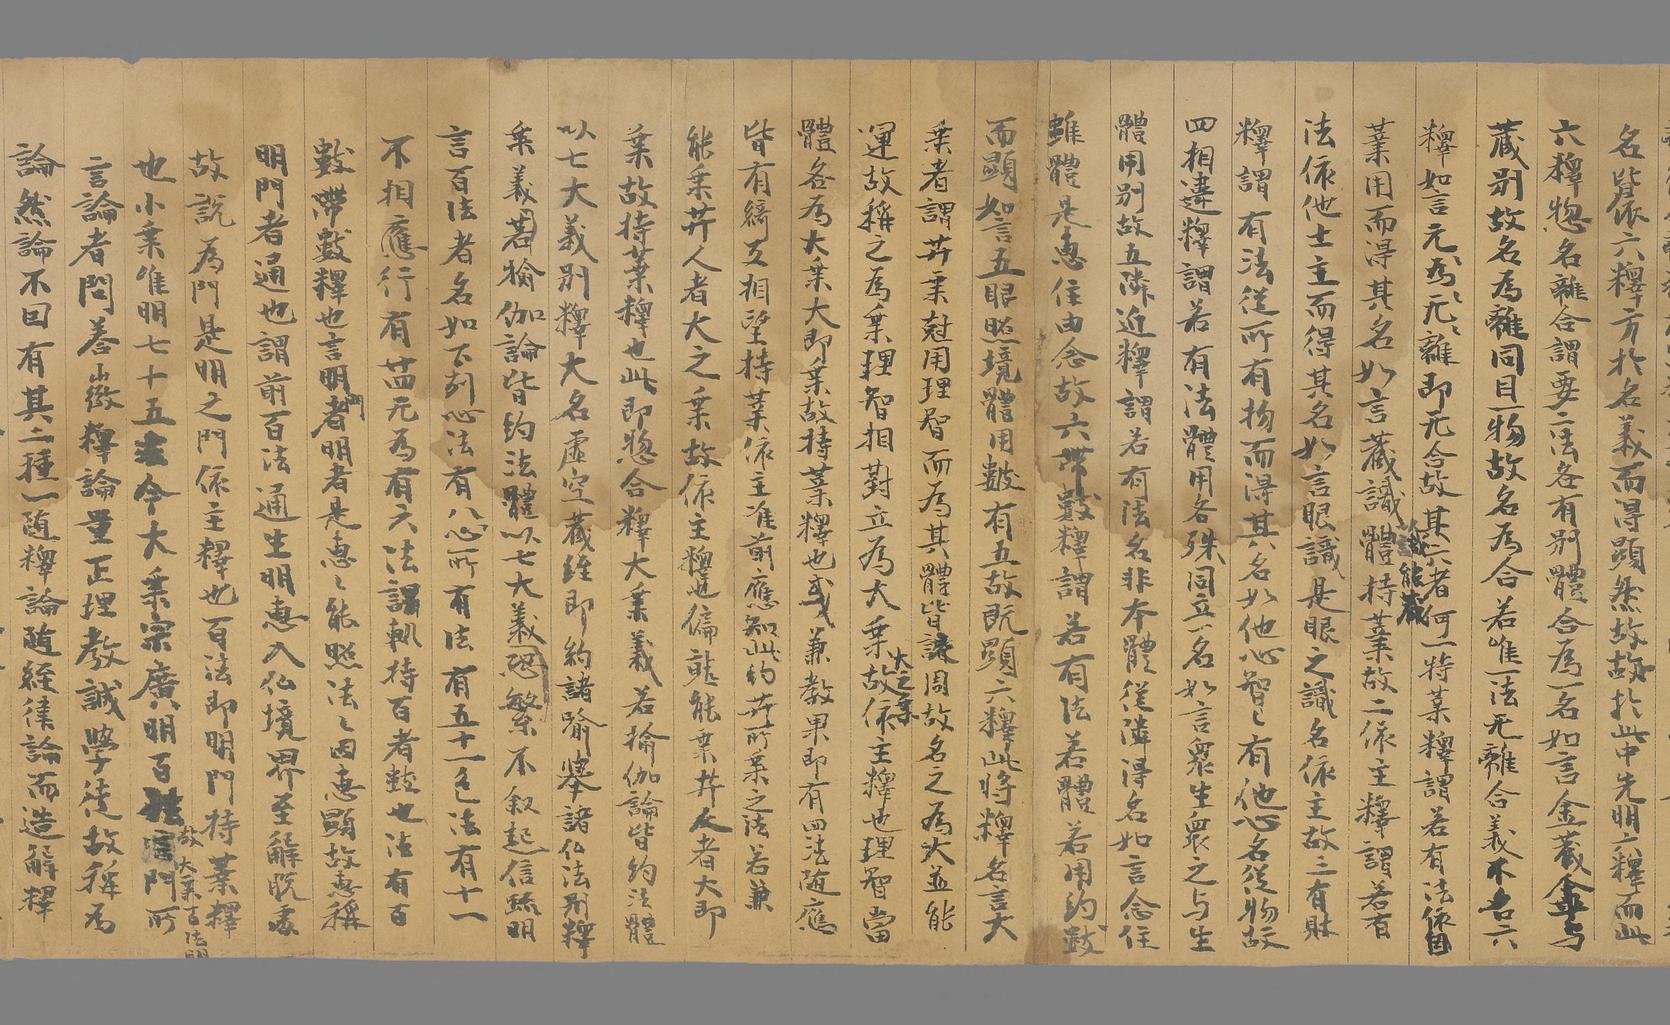 名皆依六釋方於名義而得顯然故於此中先明六釋而此
六釋惣名離合謂要二法各有別體合為一名如言金藏金与
藏別故名為離同目一物故名為合若唯一法无離合義不名六
釋如言无為无離即无合故其六者何一持業釋謂若有法依自
業用而得其名如言藏識識能藏體持業故二依主釋謂若有
法依他士主而得其名如言眼識是眼之識名依主故三有財
釋謂有法從所有物而得其名如他心智有他心名從物故
四相違釋謂若有法體用各殊同立一名如言衆生衆之与生
體用別故五隣近釋謂若有法名非本體從隣得名如言念住
雖體是惠住由念故六帶數釋謂若有法若體若用約數
而顯如言五眼照境體用數有五故既顯六釋此將釋名言大
乘者謂菩乘尅用理智而為其體皆周故名之為大並能
運故稱之為乘理智相對立為大乘故大之乘依主釋也理智當
體各為大乘大即乘故持業釋也或兼教果即有四法随應
皆有綺互相望持業依主准前應知此約菩所乘之法若兼
能乘菩人者大之乘故依主釋也偏就能乘菩人者大即
乘故持業釋也此即惣合釋大乘義若瑜伽論皆約法體
以七大義別釋大名虛空藏經即約諸喻舉諸仏法別釋
乘義若瑜伽論皆約法體以七大義恐繁不叙起信疏明
言百法者名如下列心法有八心所有法有五十一色法有十一
不相應行有廿四无為有六法謂軌持百者數也法有百
數帶數釋也言明門者明者是惠惠能照法法因惠顯故惠稱
明門者通也謂前百法通生明惠入仏境界至解脫處
故說為門是明之門依主釋也百法即明門持業釋故大乘百法明
也小乘唯明七十五法今大乘宗廣明百法言門所
言論者問荅徵釋論量正理教誡學徒故稱為
論然論不同有其二種一随釋論随經律論而造解釋